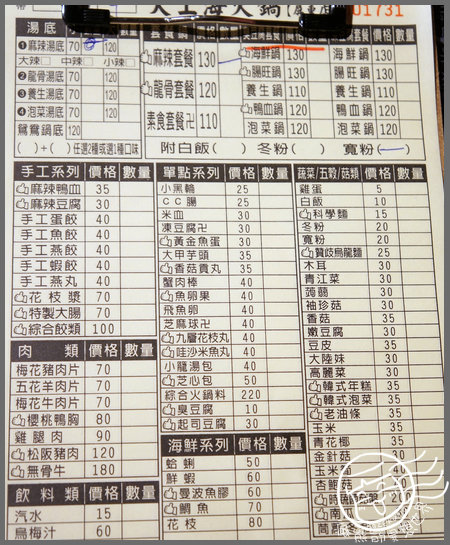 大上海火鍋
01731
湯底 70 120
❶麻辣湯底 70 120
大辣[ ] 中辣[ ] 小辣[ ]
❷龍骨湯底 70 120
❸養生湯底 70 120
❹泡菜湯底 70 120
鴛鴦鍋底 120
( )+( )任選2種或選1種口味
套餐 價格 數量
麻辣套餐 130
龍骨套餐 120
素食套餐卍 110
價格 數量
海鮮鍋 130
腸旺鍋 130
養生鍋 110
鴨血鍋 110
泡菜鍋 110
附白飯( ) 冬粉( ) 寬粉( )
手工系列 價格 數量
麻辣鴨血 35
麻辣豆腐 30
手工蛋餃 40
手工魚餃 40
手工燕餃 40
手工蝦餃 40
手工燕丸 40
花枝漿 70
特製大腸 70
綜合餃類 100
肉類 價格 數量
梅花豬肉片 70
五花羊肉片 70
梅花牛肉片 70
櫻桃鴨胸 80
雞腿肉 90
松阪豬肉 120
無骨牛 180
飲料類 價格 數量
汽水 15
烏梅汁 60
單點系列 價格 數量
小黑輪 25
CC腸 25
米血 30
凍豆腐卍 30
黃金魚蛋 30
大甲芋頭 35
香菇貢丸 35
蟹肉棒 40
魚卵果 40
飛魚卵 40
芝麻球卍 40
九層花枝丸 40
哇沙米魚丸 40
小龍湯包 40
芝心包 50
綜合火鍋料 220
臭豆腐 10
起司豆腐 30
海鮮系列 價格 數量
蛤蜊 50
鮮蝦 60
曼波魚膠 60
鯛魚 70
花枝 80
蔬菜/五穀/菇類 價格 數量
雞蛋 5
白飯 10
科學麵 15
冬粉 20
寬粉 20
贊岐烏龍麵 25
木耳 30
青江菜 30
蒟蒻 30
袖珍菇 30
香菇 35
嫩豆腐 30
豆皮 35
大陸妹 30
高麗菜 30
韓式年糕 35
韓式泡菜 35
老油條 35
玉米 35
青花椰 35
金針菇 30